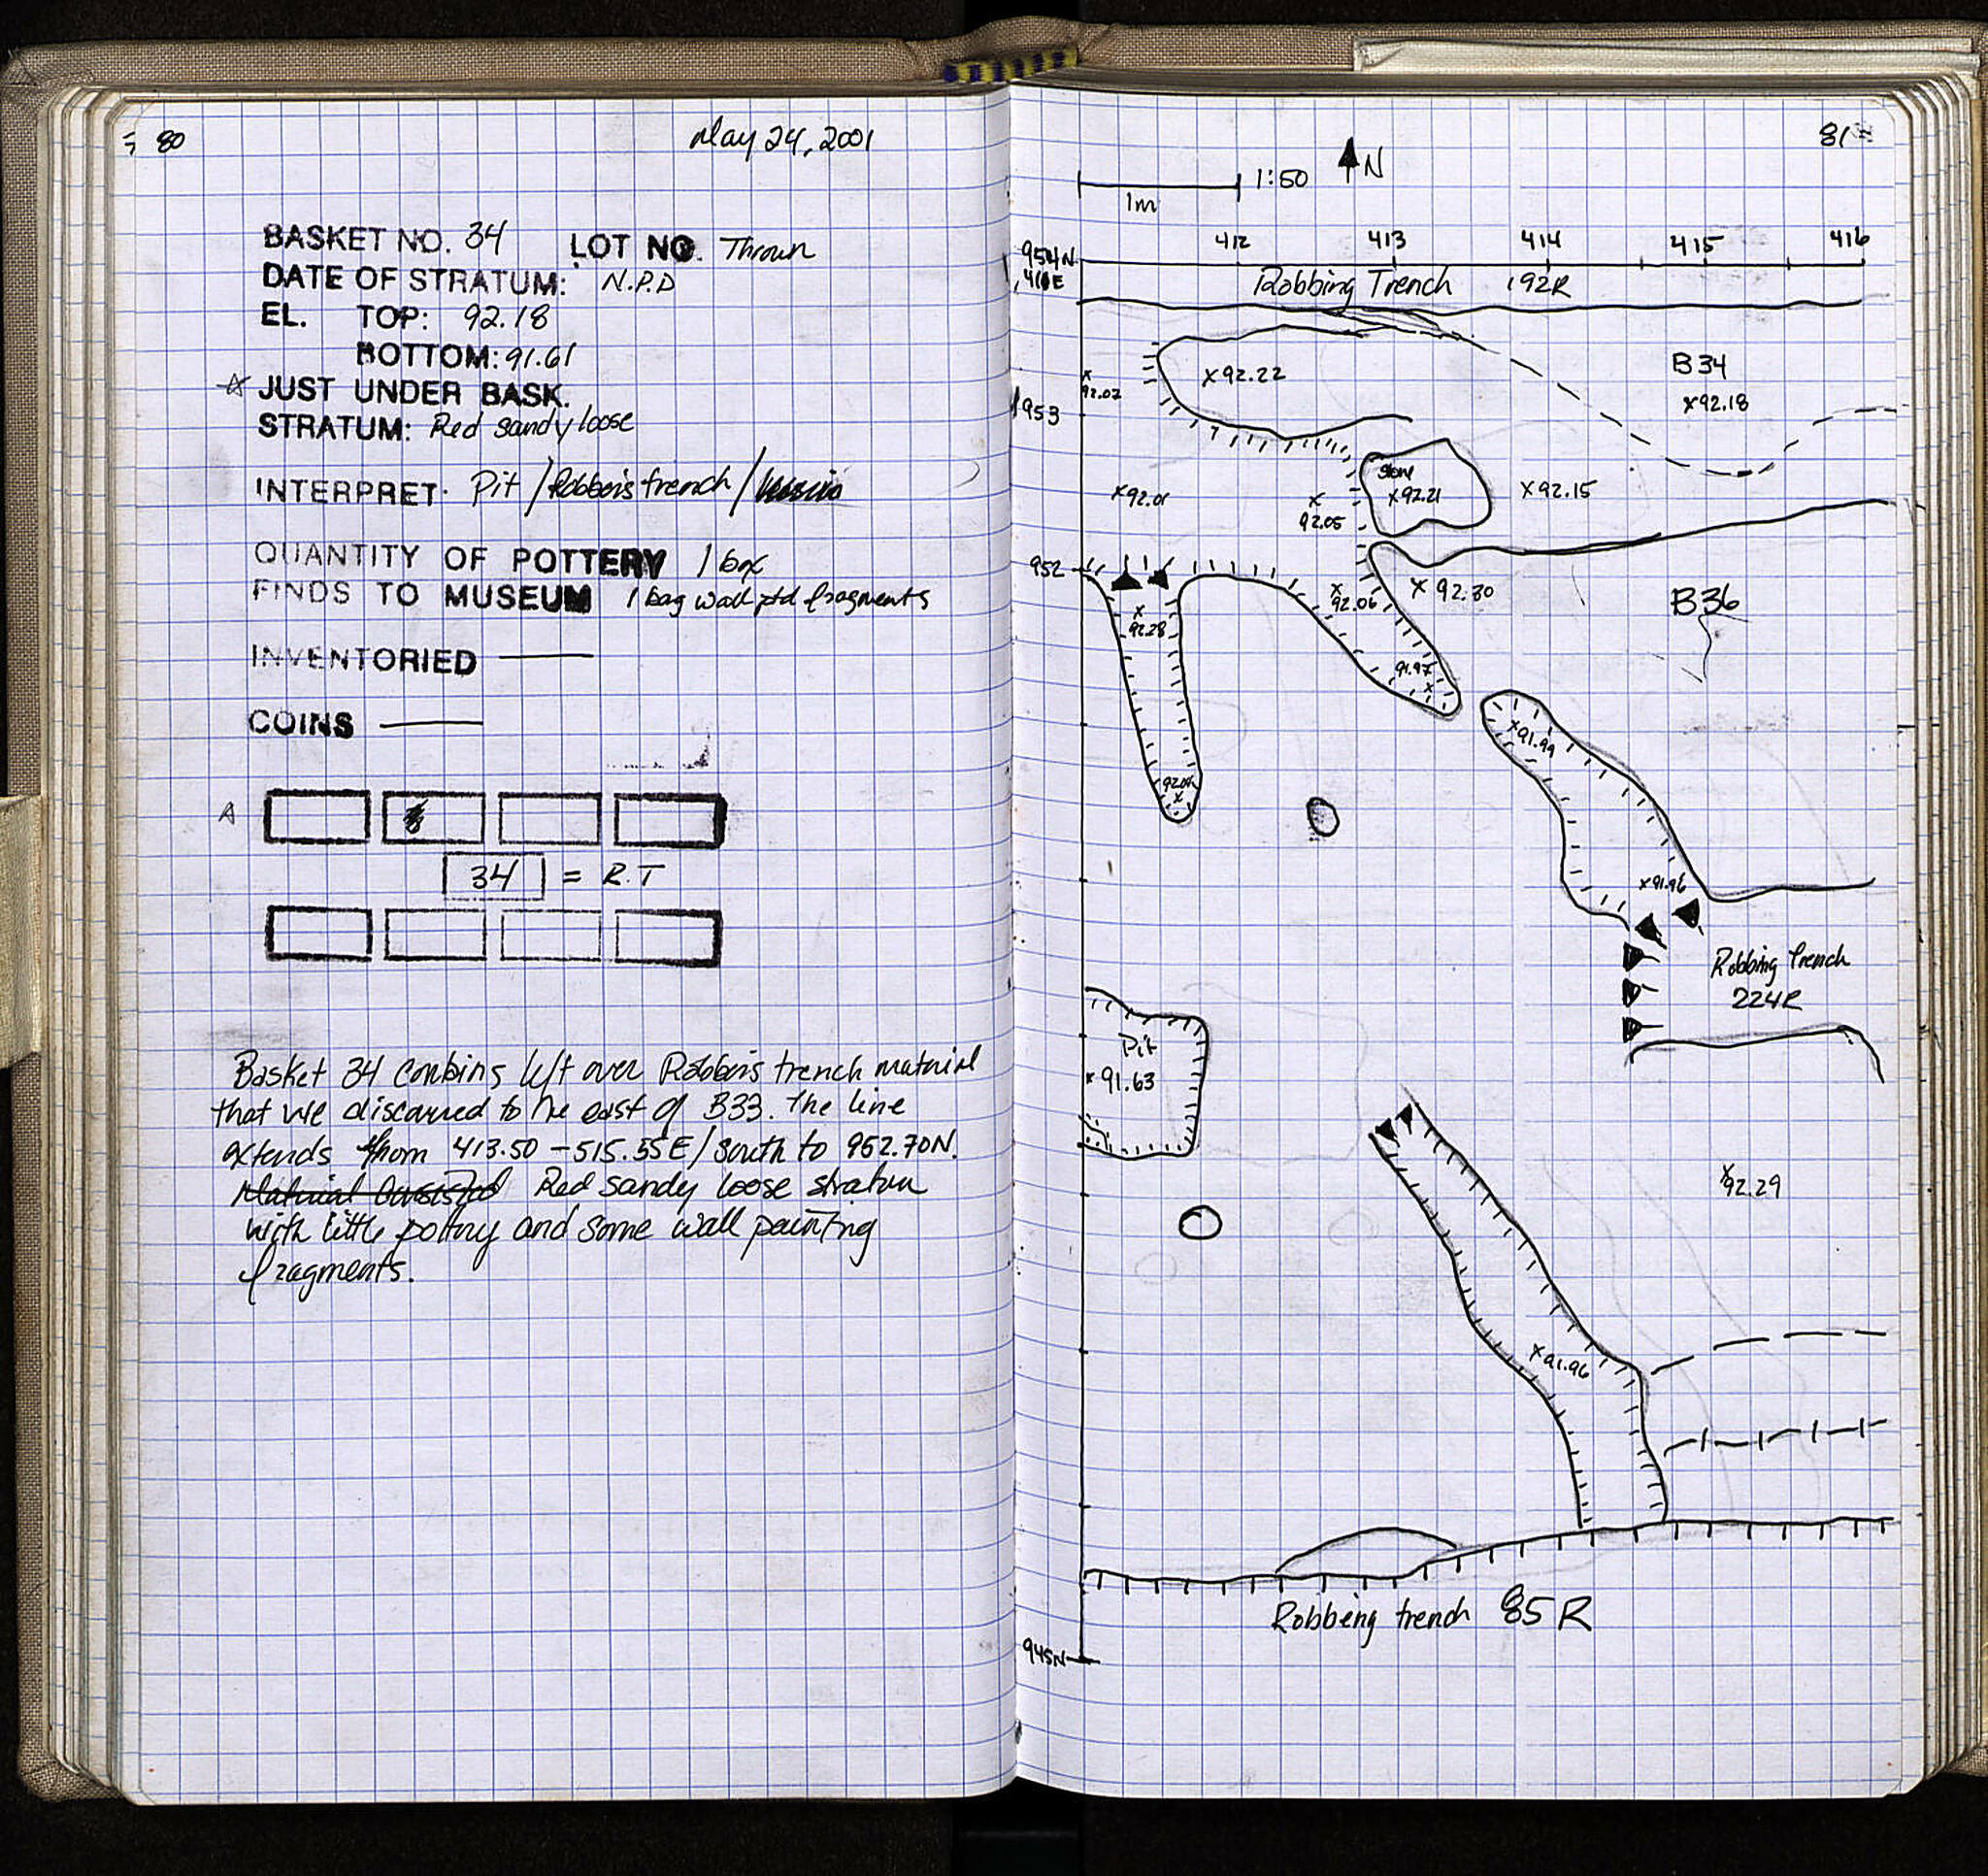 80
May 24, 2001
BASKET NO. 34 LOT NO. Thrown
DATE OF STRATUM: N.P.D
EL. TOP: 92.18
BOTTOM: 91.61
JUST UNDER BASK.
STRATUM: Red sandy loose
INTERPRET. Pit / Robbers trench /
QUANTITY OF POTTERY 1 box
FINDS TO MUSEUM 1 bag wall ptd fragments
INVENTORIED —
COINS —
34 = R.T
Basket 34 combins left over Robbers trench material
that we discarred to the east of B33. The line
extends from 413.50 - 515.55E / South to 952.70N.
Material Consisted Red sandy loose stratum
with little pottery and some wall painting
fragments.
81
1:50 N
1m
412 413 414 415 416
954N
Robbing Trench 192R
B34
x92.22
x 92.02
x92.18
953
stone
x92.21
x92.15
x92.01
x 92.05
952
x 92.30
x 92.06
B36
x 92.28
91.97 x
x91.99
x
x91.96
Robbing Trench
224R
Pit
x 91.63
x 92.29
x91.96
Robbing trench 85R
945N